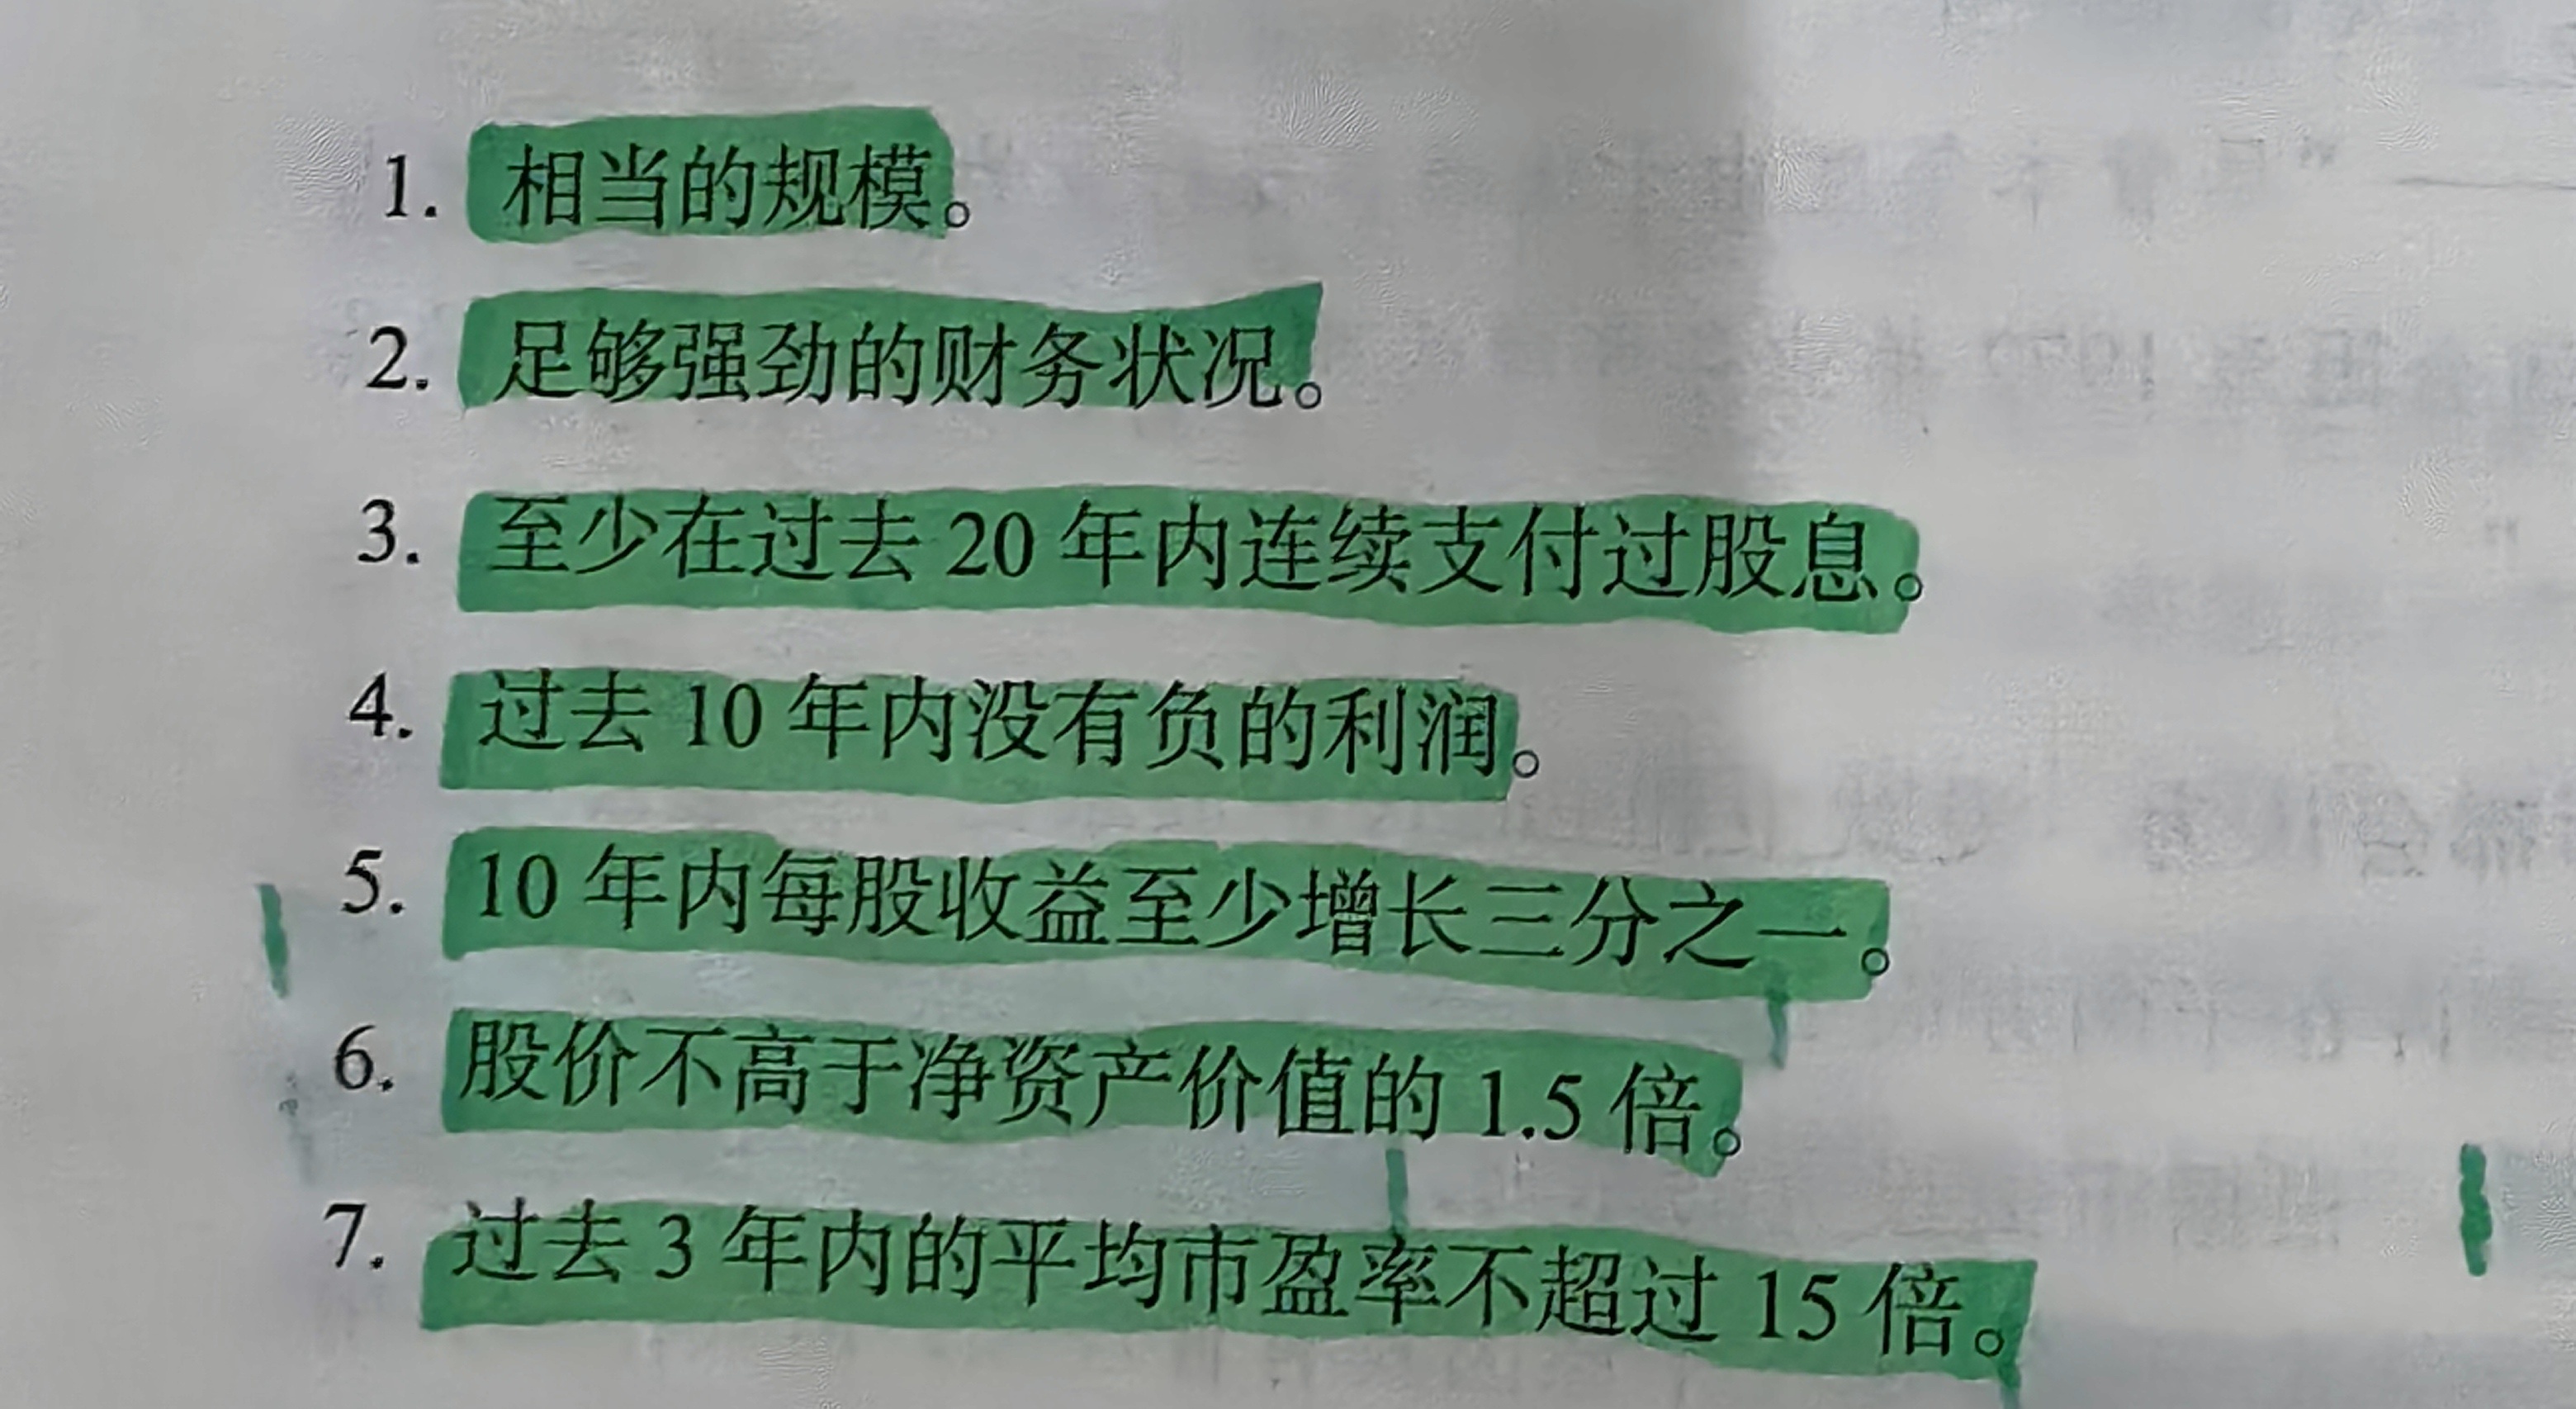 1. 相当的规模。
2. 足够强劲的财务状况。
3. 至少在过去 20 年内连续支付过股息。
4. 过去 10 年内没有负的利润。
5. 10 年内每股收益至少增长三分之一。
6. 股价不高于净资产价值的 1.5 倍。
7. 过去 3 年内的平均市盈率不超过 15 倍。